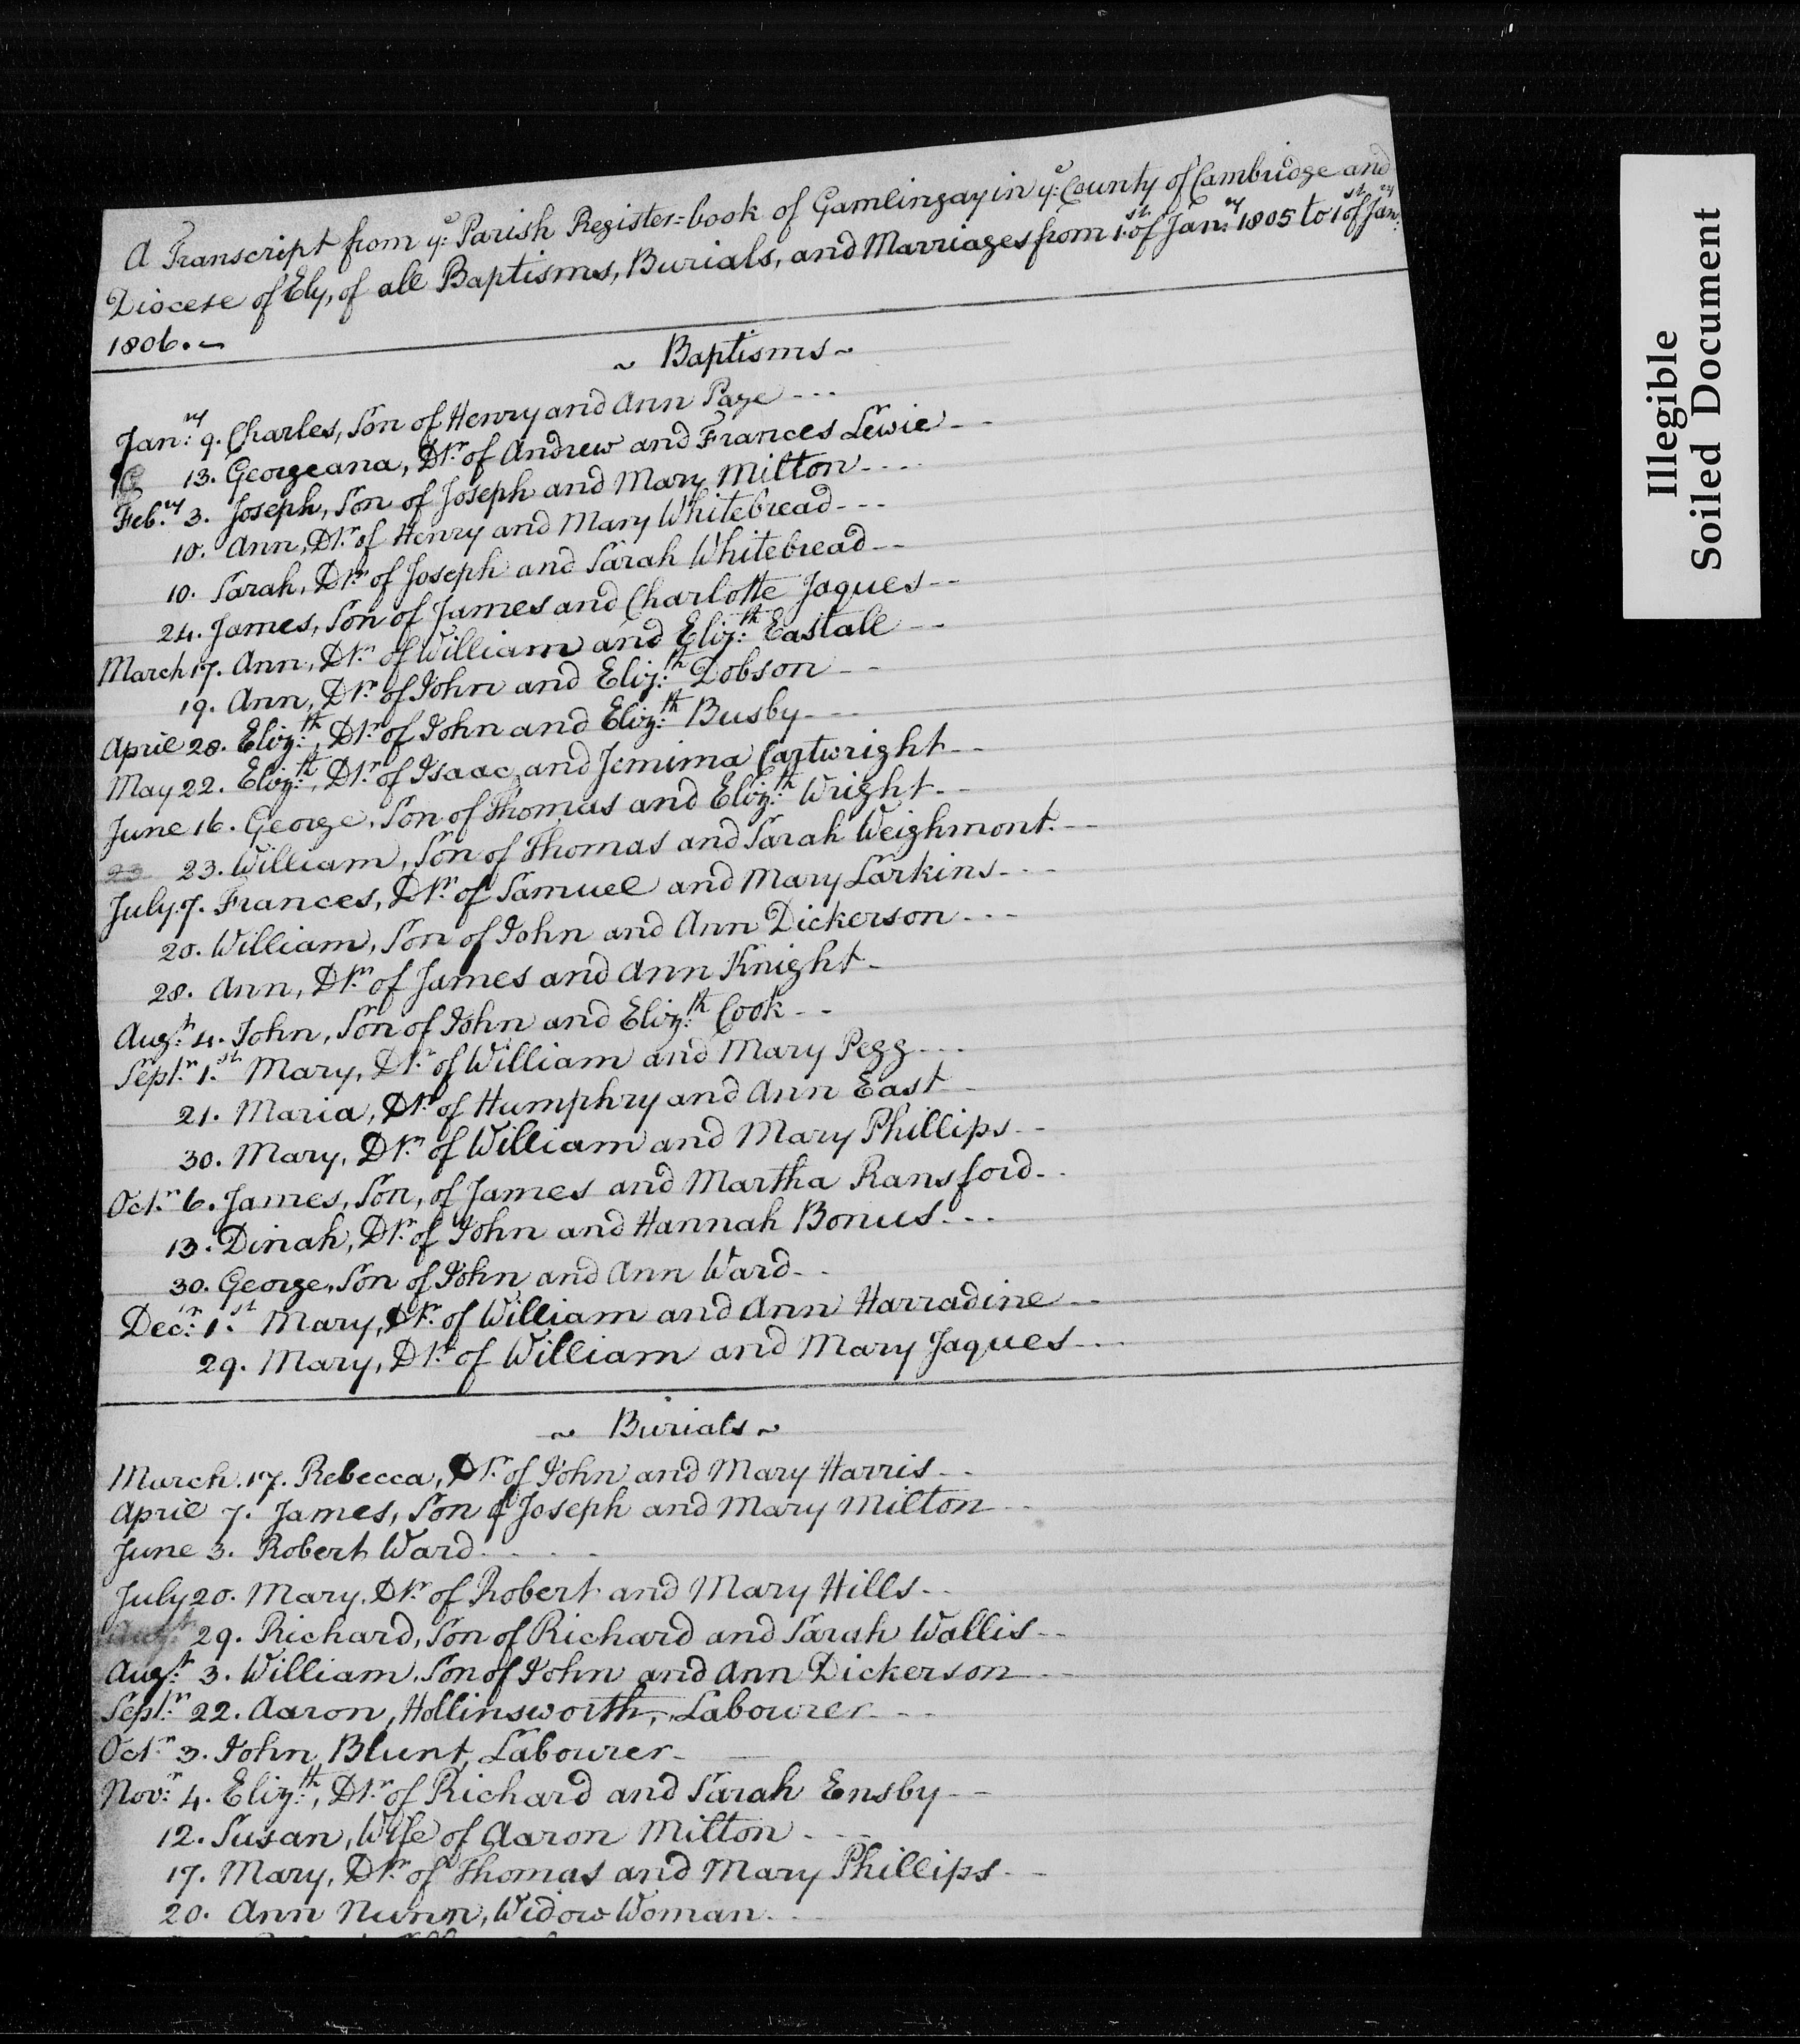 A Transcript from yᵉ: Parish Register=book of Gamlingay in yᵉ: County of Cambridge and
Diocese of Ely, of all Baptisms, Burials, and Marriages from 1ˢᵗ. of Janʸ: 1805 to 1ˢᵗ of Janʸ:
1806. ~
~ Baptisms ~
Janʸ: 9. Charles, Son of Henry and Ann Page - - -
13. Georgeana, Dʳ. of Andrew and Frances Lewie - -
Febʸ: 3. Joseph, Son of Joseph and Mary Milton - - - -
10. Ann, Dʳ. of Henry and Mary Whitebread - - -
10. Sarah, Dʳ. of Joseph and Sarah Whitebread - -
24. James, Son of James and Charlotte Jaques - -
March 17. Ann, Dʳ. of William and Elizᵗʰ: Eastall - -
19. Ann, Dʳ. of John and Elizᵗʰ: Dobson - -
April 28. Elizᵗʰ:, Dʳ. of John and Elizᵗʰ: Busby - - -
May 22. Elizᵗʰ:, Dʳ. of Isaac and Jemima Cartwright - -
June 16. George, Son of Thomas and Elizᵗʰ: Wright - -
23 23. William, Son of Thomas and Sarah Weighmont. - -
July 7. Frances, Dʳ. of Samuel and Mary Larkins - - -
20. William, Son of John and Ann Dickerson - - -
28. Ann, Dʳ. of James and Ann Knight -
Augᵗ: 4. John, Son of John and Elizᵗʰ: Cook - -
Septʳ: 1ˢᵗ. Mary, Dʳ. of William and Mary Pegg - - -
21. Maria, Dʳ. of Humphry and Ann East - -
30. Mary, Dʳ. of William and Mary Phillips - -
Octʳ. 6. James, Son, of James and Martha Ransford - -
13. Dinah, Dʳ. of John and Hannah Bonus - - -
30. George, Son of John and Ann Ward - -
Decʳ: 1ˢᵗ. Mary, Dʳ. of William and Ann Harradine - -
29. Mary, Dʳ. of William and Mary Jaques - - -
~ Burials ~
March. 17. Rebecca, Dʳ. of John and Mary Harris - -
April 7. James, Son of Joseph and Mary Milton - -
June 3. Robert Ward - - - -
July 20. Mary, Dʳ. of Robert and Mary Hills - -
29. Richard, Son of Richard and Sarah Wallis - -
Augᵗ: 3. William, Son of John and Ann Dickerson - -
Septʳ: 22. Aaron, Hollinsworth, Labourer - - -
Octʳ. 3. John Blunt, Labourer -
Novʳ: 4. Elizᵗʰ:, Dʳ. of Richard and Sarah Ensby - -
12. Susan, Wife of Aaron Milton - - -
17. Mary, Dʳ. of Thomas and Mary Phillips - -
20. Ann Nunn, Widow Woman - -
Illegible
Soiled Document